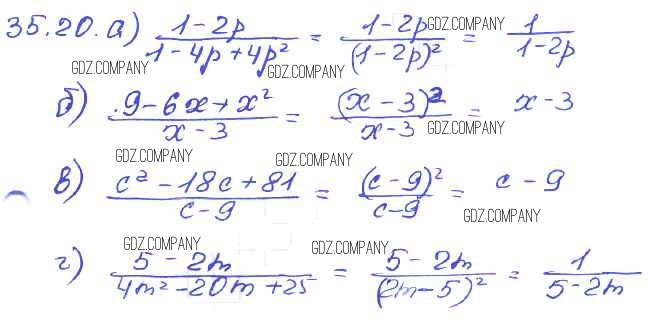 35.20. а) (1-2p)/(1-4p+4p²) = (1-2p)/(1-2p)² = 1/(1-2p)
GDZ.COMPANY
GDZ.COMPANY GDZ.COMPANY
б) (9-6x+x²)/(x-3) = (x-3)²/(x-3) = x-3
GDZ.COMPANY
GDZ.COMPANY GDZ.COMPANY
в) (c²-18c+81)/(c-9) = (c-9)²/(c-9) = c-9
GDZ.COMPANY
GDZ.COMPANY GDZ.COMPANY
г) (5-2m)/(4m²-20m+25) = (5-2m)/(2m-5)² = 1/(5-2m)